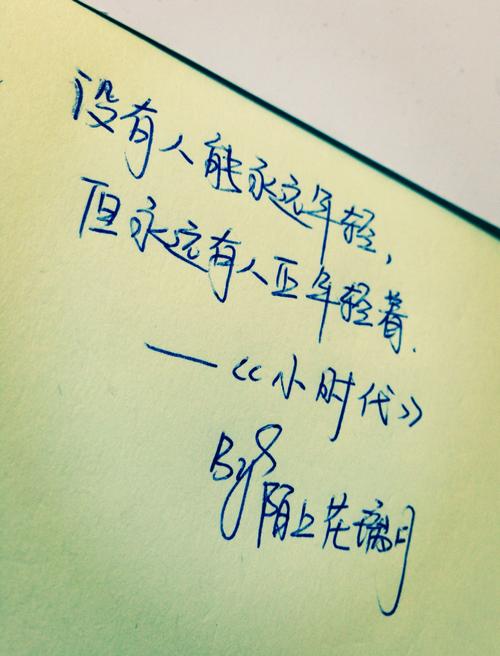 没有人能永远年轻,
但永远有人正年轻着.
——《小时代》
By 陌上花璃月